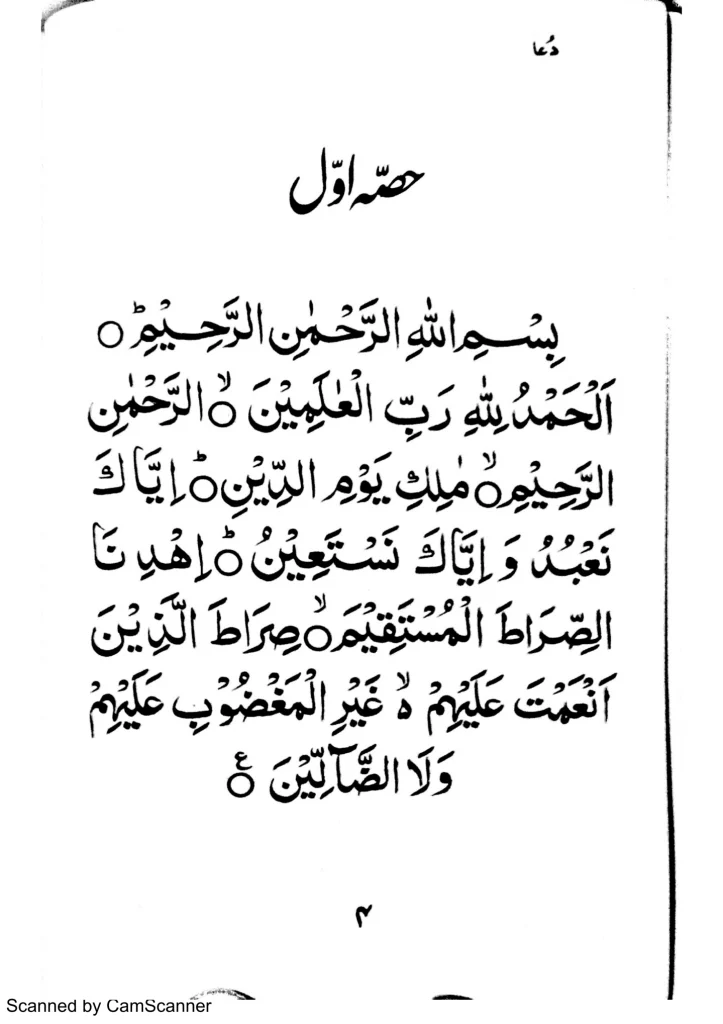 دُعا
حصّہ اوّل
بِسْمِ اللهِ الرَّحْمٰنِ الرَّحِيْمِ ؕ○
اَلْحَمْدُ لِلّٰهِ رَبِّ الْعٰلَمِيْنَ ○ۙ الرَّحْمٰنِ
الرَّحِيْمِ ○ۙ مٰلِكِ يَوْمِ الدِّيْنِ ○ؕ اِيَّاكَ
نَعْبُدُ وَ اِيَّاكَ نَسْتَعِيْنُ ○ؕ اِهْدِنَا
الصِّرَاطَ الْمُسْتَقِيْمَ ○ۙ صِرَاطَ الَّذِيْنَ
اَنْعَمْتَ عَلَيْهِمْ ۙ۵ غَيْرِ الْمَغْضُوْبِ عَلَيْهِمْ
وَلَا الضَّآلِّيْنَ ○ع
۴
Scanned by CamScanner